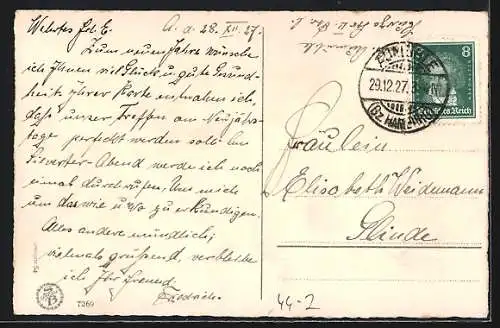 Wertes Frl. E.
A. d. 28. XII. 27.
Zum neuen Jahre wünsche
ich Ihnen viel Glück u. gute Gesund-
heit. Ihrer Karte entnahm ich,
dass unser Treffen am Neujahrs-
tage perfekt werden soll. Am
Silvester-Abend werde ich noch
einmal durchrufen. Um mich
um das wie u. wo zu erkundigen.
Alles andere mündlich;
vielmals grüßend, verbleibe
ich Ihr Freund
7269
8
Deutsches Reich
29.12.27.
Fräulein
Elisabeth Weidemann
Glinde
44-2